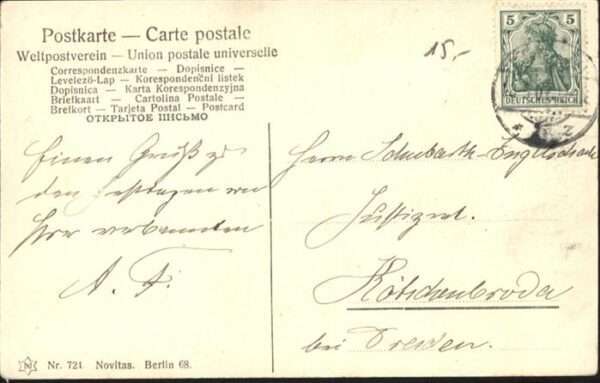 Postkarte — Carte postale
Weltpostverein — Union postale universelle
Correspondenzkarte — Dopisnice —
Levelező-Lap — Korespondenční listek
Dopisnica — Karta Korespondenzyjna
Briefkaart — Cartolina Postale —
Brefkort — Tarjeta Postal — Postcard
ОТКРЫТОЕ ПИСЬМО
15,-
5 5
DEUTSCHES REICH
Einen Gruß zu
den
Ihre
A. F.
Herrn
Justizrat.
Kötschenbroda
bei Dresden.
N Nr. 721 Novitas. Berlin 68.